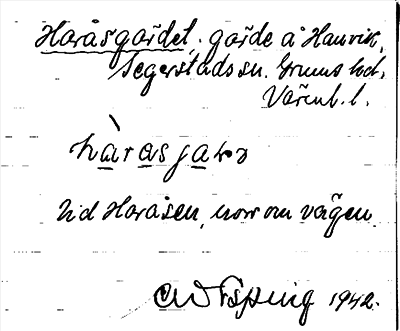 Haråsgärdet, gärde å Hanvik,
Segerstads sn. Grums hd.
Värml. l.
hàrasjaɫɔ
Vid Haråsen, norr om vägen.
1942.